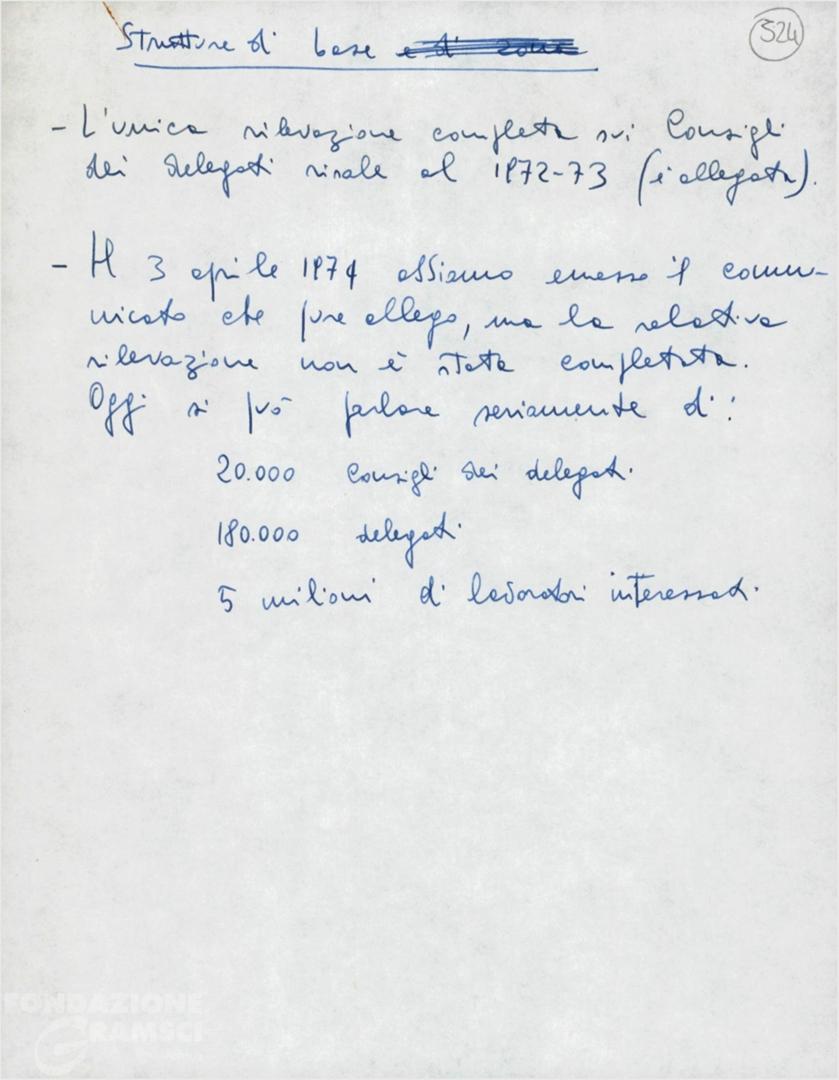 524
Strutture di base e di zona
- L'unica rilevazione completa sui Consigli
dei delegati risale al 1972-73 (è allegata).
- Il 3 aprile 1974 abbiamo emesso il comu-
nicato che pure allego, ma la relativa
rilevazione non è stata completata.
Oggi si può parlare seriamente di:
20.000 Consigli dei delegati.
180.000 delegati.
5 milioni di lavoratori interessati.
FONDAZIONE
GRAMSCI